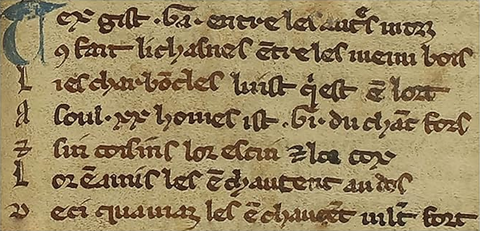 Tex gist · ba · entre les autͥs mors
ꝯ fait li chasnes ētre les menu bois
Lies charbōcles luist qͥ est ē lort
A soul · xx homes ist · bi · du chāt fors
⁊ sui coisins lor escin ⁊ lor cox
Lor ēamis les ēchaucent au dos
D eci qua viaz les ēchaucēt mlt fort